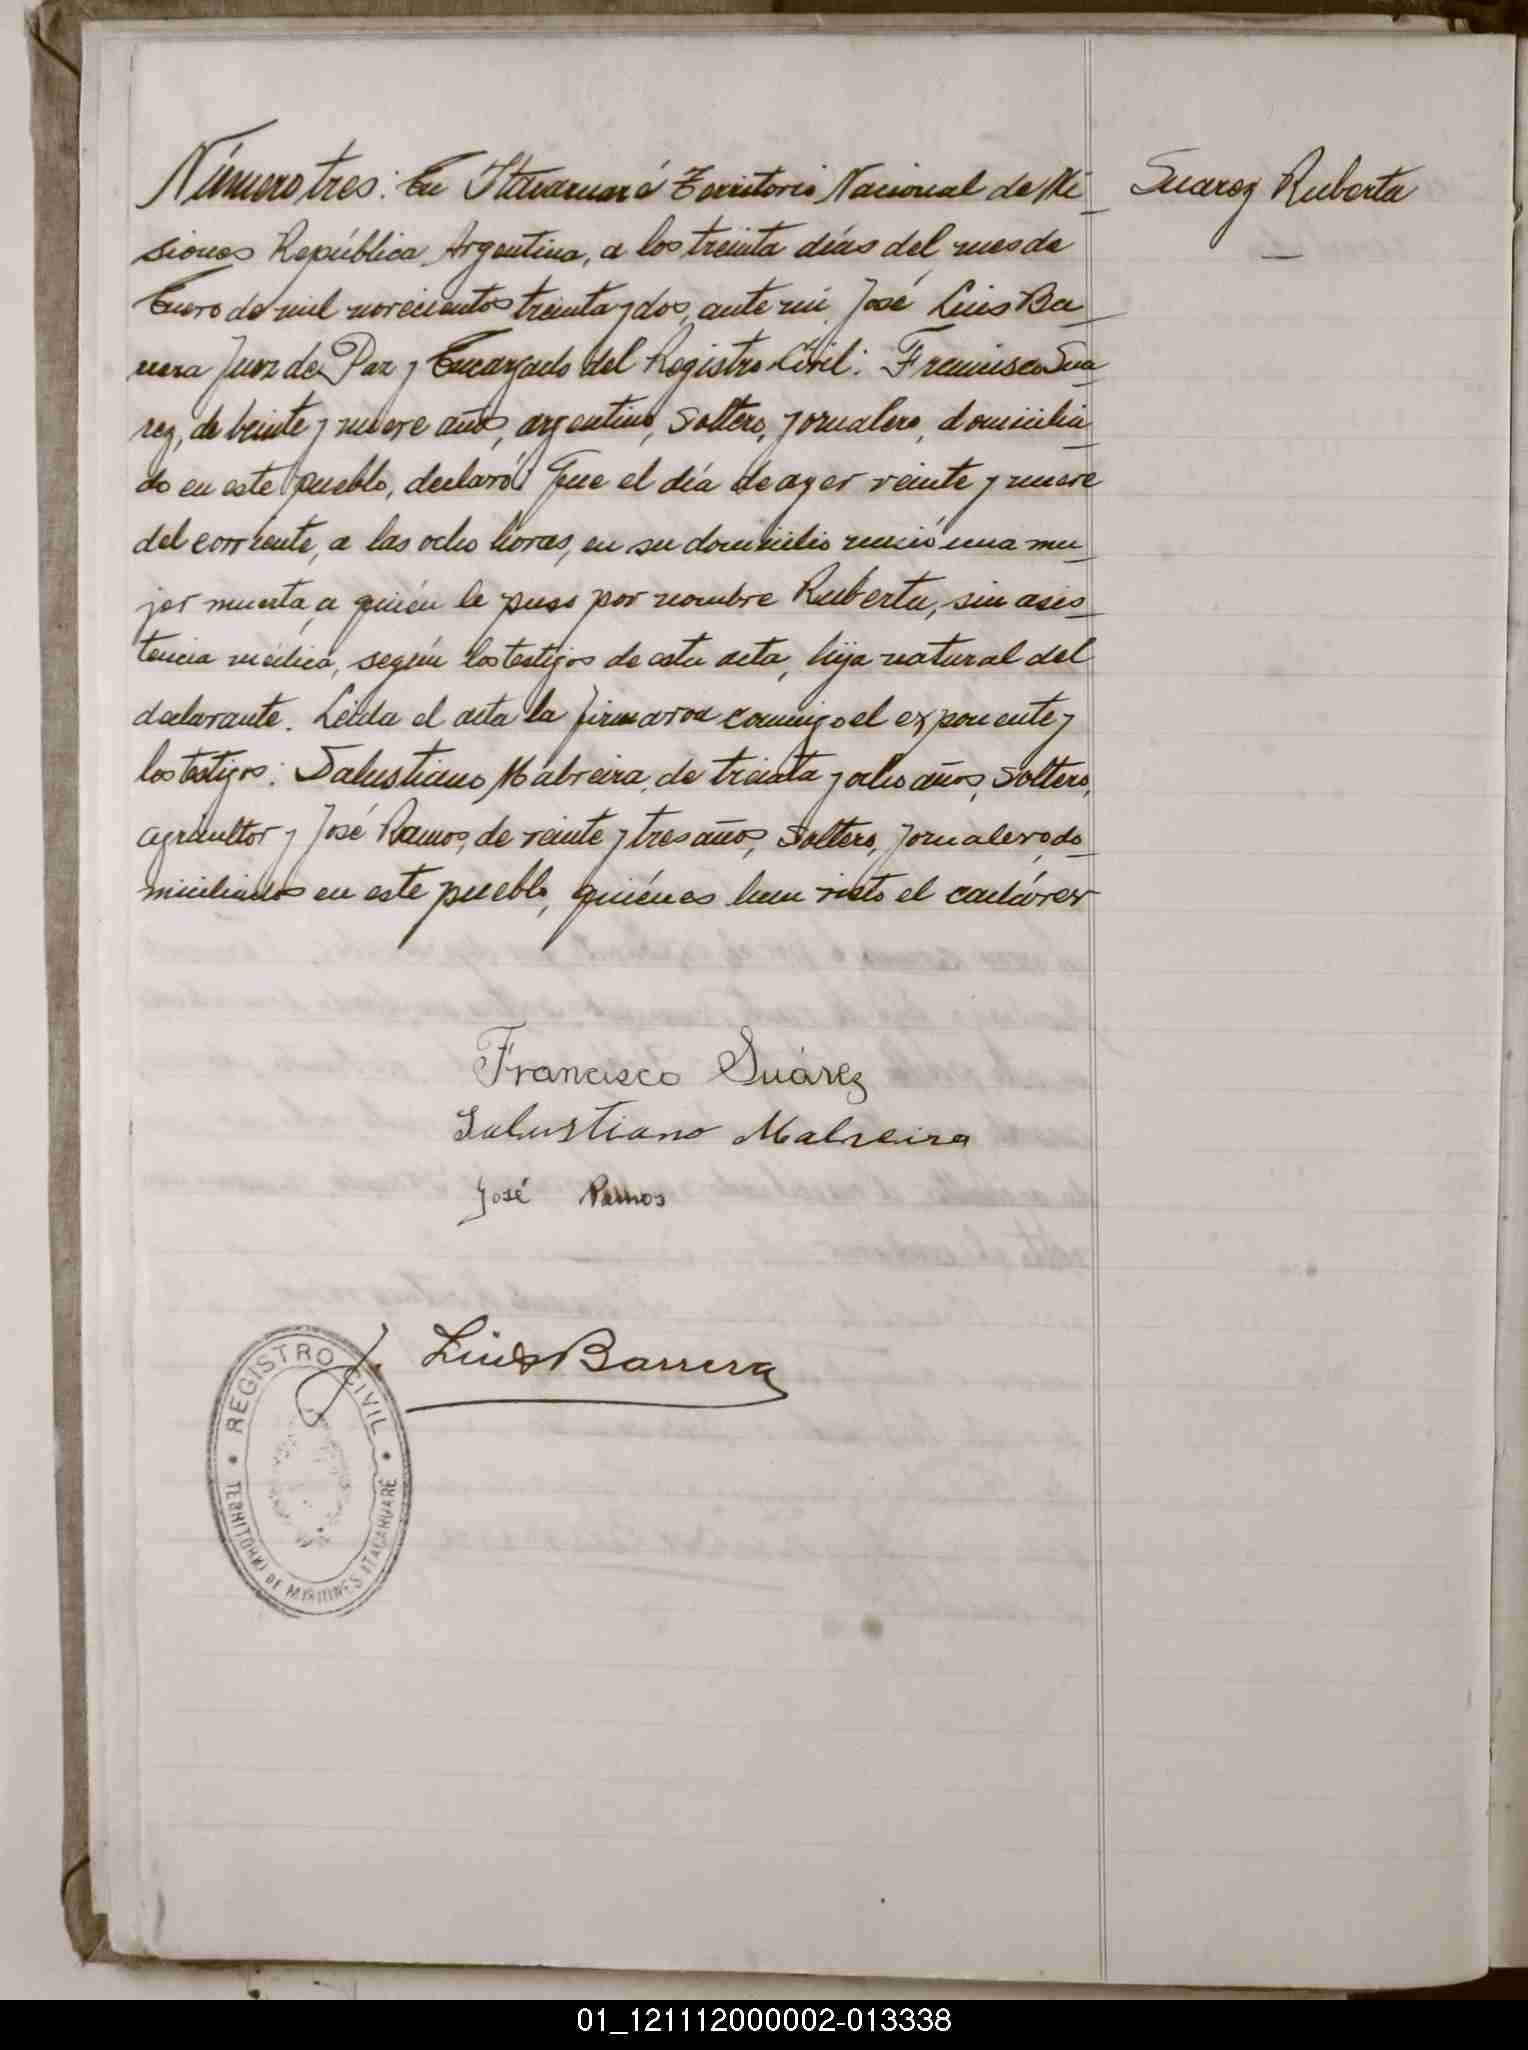 Número tres: En Itacaruaré Territorio Nacional de Mi
Suarez Ruberta
siones República Argentina, a los treinta días del mes de
Enero de mil novecientos treinta y dos, ante mi, José Luis Ba
rrera Juez de Paz y Encargado del Registro Civil: Francisco Sua
rez, de beinte y nueve años, argentino, soltero, jornalero, domicilia
do en este pueblo, declaró: Que el día de ayer veinte y nueve
del corriente, a las ocho horas, en su domicilio nació una mu
jer muerta, a quién le puso por nombre Ruberta, sin asis
tencia médica, según los testigos de esta acta, hija natural del
declarante. Leída el acta la firmaron conmigo el exponente y
los testigos: Salustiano Mabreira, de treinta y ocho años, soltero,
agricultor y José Ramos, de veinte y tres años, soltero, jornalero, do
miciliados en este pueblo, quiénes han visto el cadáver
Francisco Suárez
Salustiano Mabreira
José Ramos
J. Luis Barrera
REGISTRO CIVIL
TERRITORIO DE MISIONES ITACARUARÉ
01_121112000002-013338